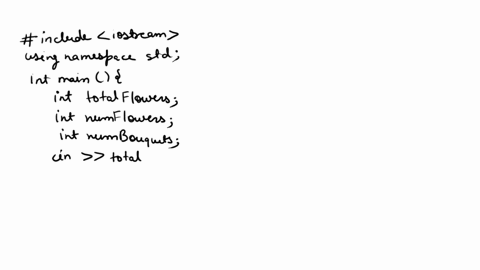 # include <iostream>
using namespace std;
int main () {
int totalFlowers;
int numFlowers;
int numBouquets;
cin >> total